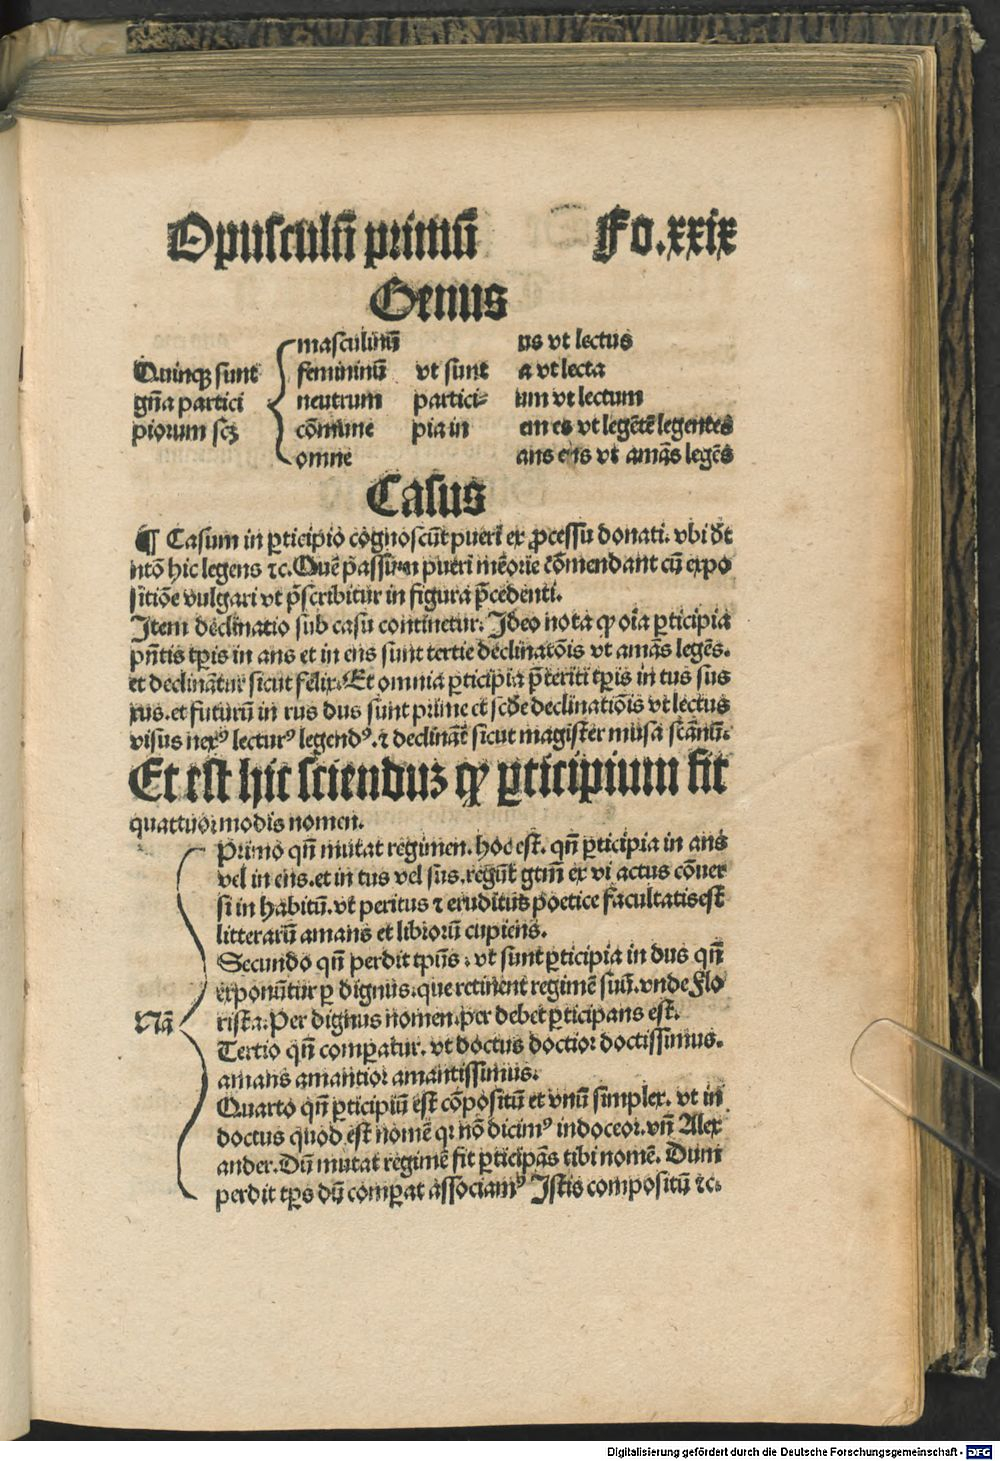 Opusculū primū Fo.xxix
Genus
masculinū us vt lectus
Quinqꝫ sunt femininū vt sunt a vt lecta
gn̄a partici neutrum partici⸗ um vt lectum
piorum scꝫ cōmune pia in em es vt legētē legentes
omne ans ens vt amās legēs
Casus
¶ Casum in ꝑticipio cognoscūt pueri ex ꝓcessu donati. vbi dr̄
ntō hic legens ⁊c. Quē passim pueri mēorie cōmendant cū expo
sitiōe vulgari vt p̄scribitur in figura p̄cedenti.
Item declinatio sub casu continetur. Ideo nota ꝙ oīa ꝑticipia
pn̄tis tꝑis in ans et in ens sunt tertie declinatōis vt amās legēs.
et declinātur sicut felix. Et omnia ꝑticipia p̄teriti tꝑis in tus sus
xus. et futurū in rus dus sunt prime et scd̄e declinatiōis vt lectus
visus nexꝰ lecturꝰ legendꝰ. ⁊ declināt̄ sicut magister musa scānū.
Et est hic scienduꝫ ꝙ ꝑticipium fit
quattuor modis nomen.
Primo qn̄ mutat regimen. hoc est. qn̄ ꝑticipia in ans
vel in ens. et in tus vel sus. regūt gtm̄ ex vi actus cōuer
si in habitū. vt peritus ⁊ eruditus poetice facultatis est
litterarū amans et librorū cupiens.
Secundo qn̄ perdit tp̄us. vt sunt ꝑticipia in dus qn̄
exponūtur ꝑ dignus. que retinent regimē suū. vnde Flo
Nā rista. Per dignus nomen. per debet ꝑticipans est.
Tertio qn̄ comꝑatur. vt doctus doctior doctissimus.
amans amantior amantissimus.
Quarto qn̄ ꝑticipiū est cōpositū et vnū simplex. vt in
doctus quod est nomē qꝛ nō dicimꝰ indoceor. vn̄ Alex
ander. Dū mutat regimē fit ꝑticipās tibi nomē. Dum
perdit tꝑs dū comꝑat associamꝰ Istis compositū ⁊c.
Digitalisierung gefördert durch die Deutsche Forschungsgemeinschaft - DFG